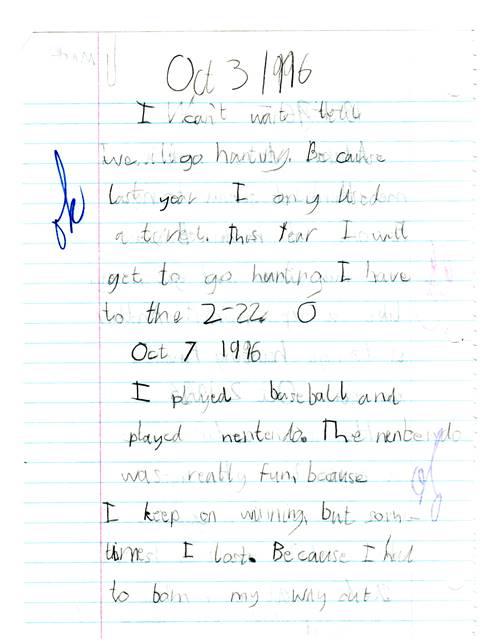 Oct 3 1996
I can't wait
we go hanting. Because
last year I only Used
a target. This Year I will
get to go hunting I have
to the 2-22
ok
Oct 7 1996
I played baseball and
played nentendo. The nentendo
was really fun, because
I keep on wining, but som-
times I lost. Because I had
to bom my way out